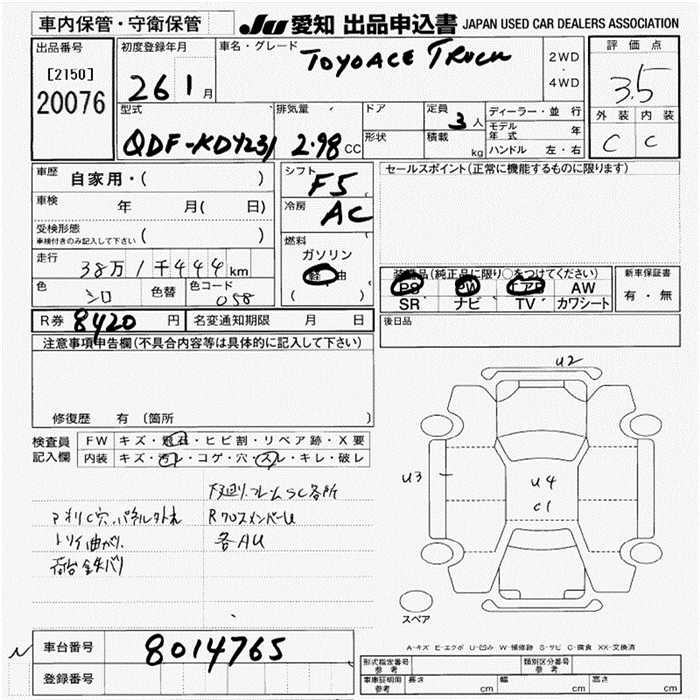 車内保管・守衛保管 JU 愛知 出品申込書 JAPAN USED CAR DEALERS ASSOCIATION
出品番号
[2150]
20076
初度登録年月
26 1 月
車名・グレード
TOYOACE TRUCK
2WD
・
4WD
評価点
3.5
外装 内装
C C
型式
QDF-KDY231
排気量
2.98 CC
ドア
形状
定員 3 人
積載 kg
ディーラー・並 行
モデル年式 年
ハンドル 左・右
車歴
自家用・( )
車検 年 月( 日)
受検形態
車検付きのみ記入して下さい ( )
走行
38万1千444 km
色 シロ 色替 色コード 058
シフト
F5
冷房
AC
燃料
ガソリン
軽 油
( )
セールスポイント(正常に機能するものに限ります)
装備品(純正品に限り○をつけてください)
PS PW エアB AW
SR ナビ TV カワシート
新車保証書
有・無
R券 8420 円 名変通知期限 月 日
後日品
注意事項申告欄(不具合内容等は具体的に記入して下さい)
修復歴 有 (箇所 )
検査員
記入欄
FW キズ・飛石・ヒビ割・リペア跡・X要
内装 キズ・汚レ・コゲ・穴・スレ・キレ・破レ
下廻り.フレームSC各所
アオリC穴.パネル外れ Rクロスメンバーu
トリイ曲がり. 各AU
荷台鉄バリ
U2
U3
U4
C1
スペア
A-キズ E-エクボ U-凹み W-補修跡 S-サビ C-腐食 XX-交換済
車台番号 8014765
登録番号
形式指定番号 参考
類別区分番号 参考
車庫証明用 参考 長さ cm 幅 cm 高さ cm